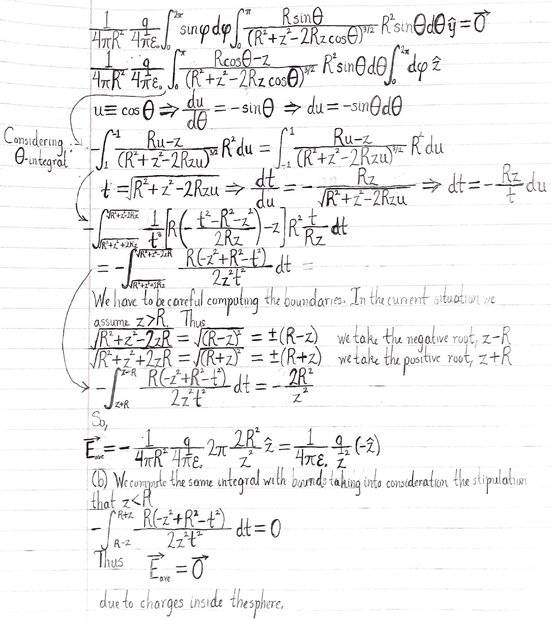 1/(4πR²) q/(4πε₀) ∫₀^{2π} sinφdφ ∫₀^{π} Rsinθ/(R²+z²-2Rzcosθ)^{3/2} R²sinθdθ ŷ = 0⃗
1/(4πR²) q/(4πε₀) ∫₀^{π} (Rcosθ-z)/(R²+z²-2Rzcosθ)^{3/2} R²sinθdθ ∫₀^{2π} dφ ẑ
u ≡ cosθ ⇒ du/dθ = -sinθ ⇒ du = -sinθdθ
Considering
θ-integral
-∫₁^{-1} (Ru-z)/(R²+z²-2Rzu)^{3/2} R²du = ∫₋₁^{1} (Ru-z)/(R²+z²-2Rzu)^{3/2} R²du
t = √(R²+z²-2Rzu) ⇒ dt/du = -Rz/√(R²+z²-2Rzu) ⇒ dt = -Rz/t du
-∫_{√(R²+z²+2Rz)}^{√(R²+z²-2Rz)} 1/t³ [R(-(t²-R²-z²)/(2Rz))-z] R² t/(Rz) dt
= -∫_{√(R²+z²+2Rz)}^{√(R²+z²-2Rz)} R(-z²+R²-t²)/(2z²t²) dt =
We have to be careful computing the boundaries. In the current situation we
assume z>R. Thus
√(R²+z²-2zR) = √(R-z)² = ±(R-z) we take the negative root, z-R
√(R²+z²+2zR) = √(R+z)² = ±(R+z) we take the positive root, z+R
-∫_{z+R}^{z-R} R(-z²+R²-t²)/(2z²t²) dt = -2R²/z²
So,
E⃗ave = -1/(4πR²) q/(4πε₀) 2π 2R²/z² ẑ = 1/(4πε₀) q/z² (-ẑ)
(b) We compute the same integral with bounds taking into consideration the stipulation
that z<R
-∫_{R-z}^{R+z} R(-z²+R²-t²)/(2z²t²) dt = 0
Thus E⃗ave = 0⃗
due to charges inside the sphere.